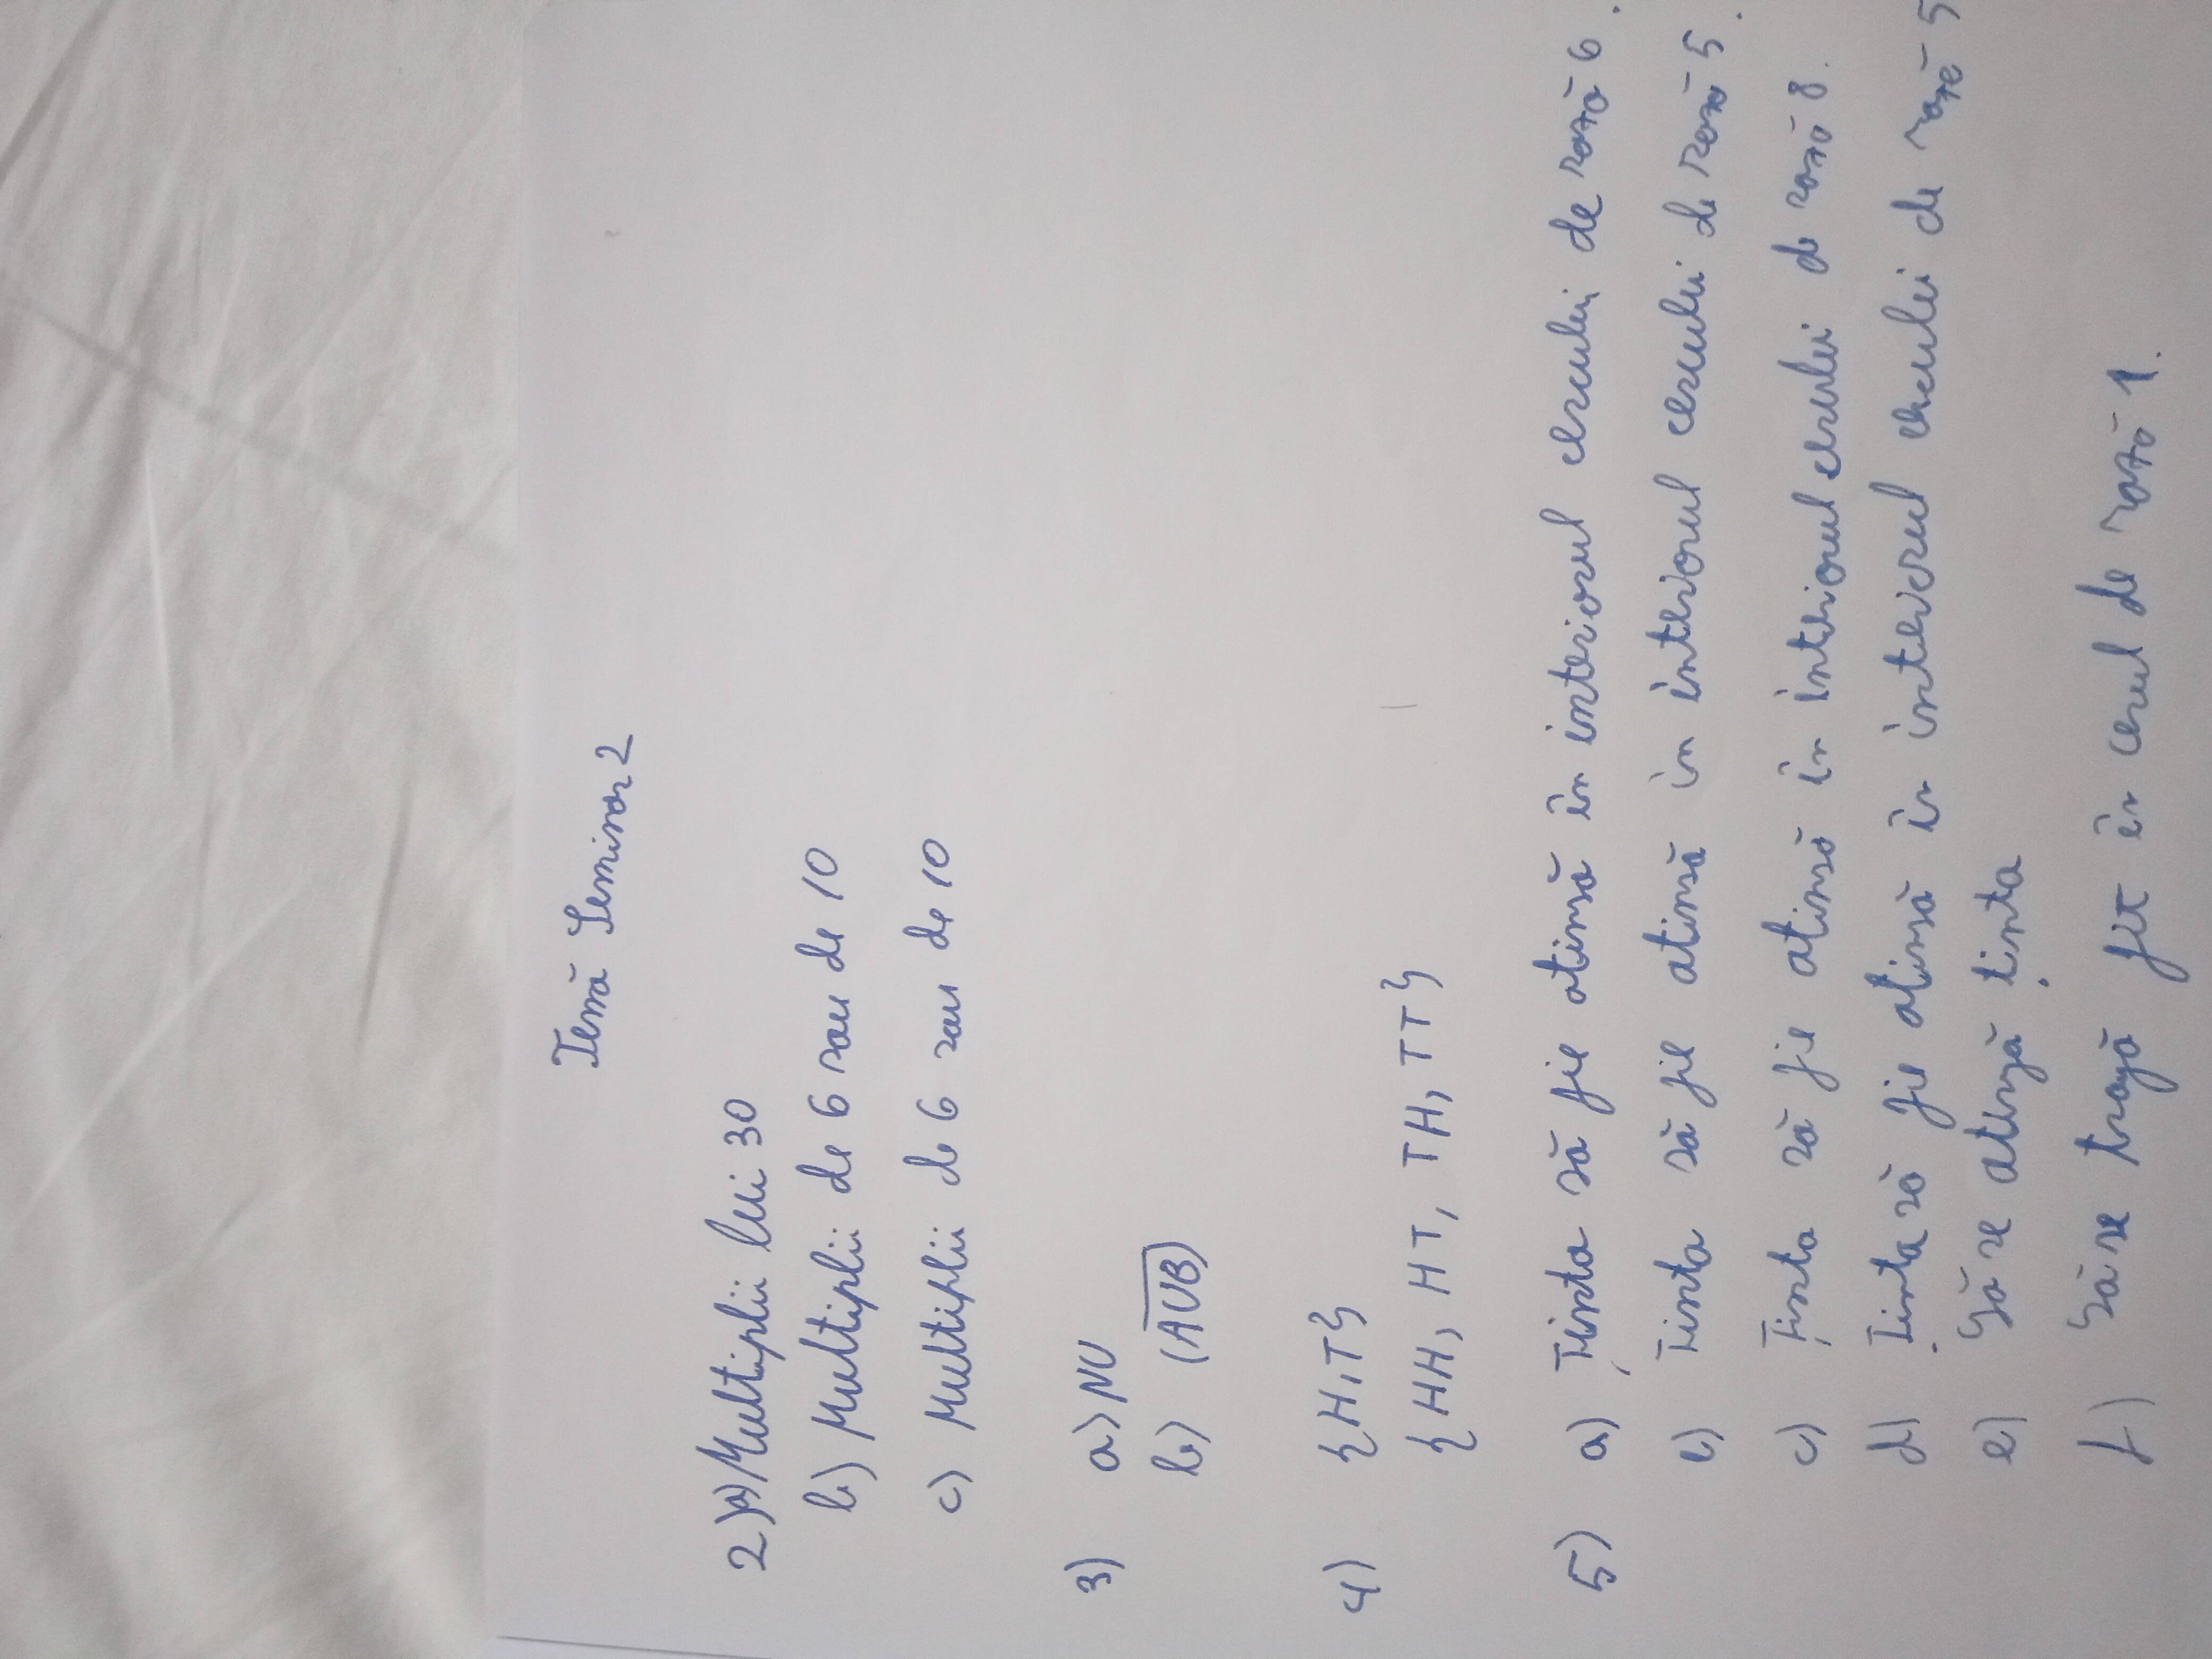 Temă Seminar 2
2)a) Multiplii lui 30
b) Multiplii de 6 sau de 10
c) Multiplii de 6 sau de 10
3) a) NU
b) (A∪B)̅
4) {H,T}
{HH, HT, TH, TT}
5) a) Ținta să fie atinsă în interiorul cercului de rază 6.
b) Tinta să fie atinsă in interiorul cercului de rază 5.
c) Ținta să fie atinsă în interiorul cercului de rază 8.
d) Ținta să fie atinsă în interiorul cercului de rază 5
e) Să se atingă ținta
f) Să se tragă fix în cercul de rază 1.